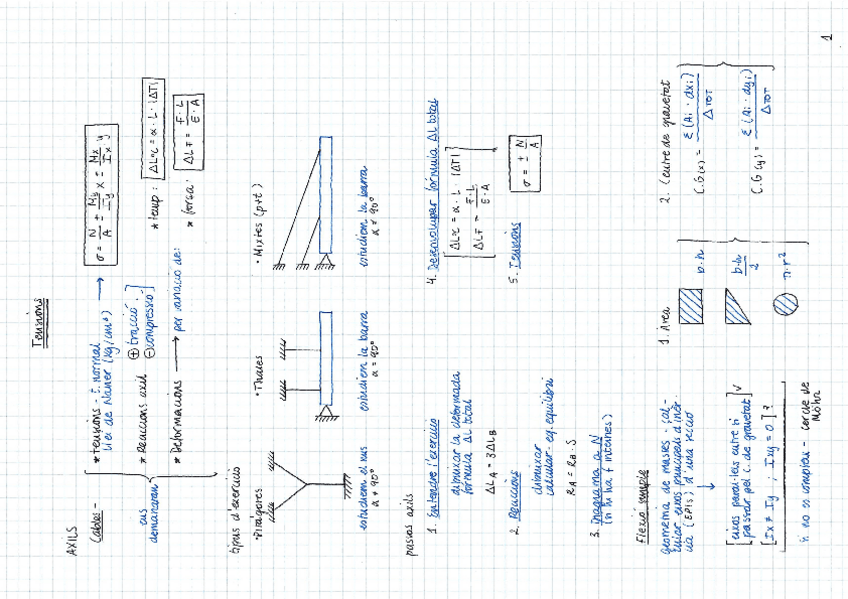 1
Tensions
AXILS
Cables -
ens demanaran
* tensions - t. normal
llei de Navier (kg/cm²)
σ = N/A ± My/Iy x ± Mx/Ix y
* Reaccions axil
⊕ tracció
⊖ compressió
* Deformacions → per variació de:
* temp: ΔLτ = α · L · |ΔT|
* força: ΔLF = F · L / E · A
tipus d'exercici
· Pitàgores
estudiem el nus
α ≠ 90°
· Thales
estudiem la barra
α = 90°
· Mixtes (p+t)
estudiem la barra
α ≠ 90°
passos axils
1. Entendre l'exercici
dibuixar la deformada
fórmula ΔL total
ΔLA = 3ΔLB
2. Reaccions
dibuixar
calcular - eq. equilibri
RA = RB · S
3. Diagrama a N
(n hi ha f internes)
4. Desenvolupar fórmula ΔL total
ΔLτ = α · L · |ΔT|
ΔLF = F · L / E · A
5. Tensions
σ = ± N/A
Flexió simple
geometria de masses · cal-
cular eixos principals d'inèr-
cia (EPIS) d'una secció
eixos paral·lels entre si
passar pel c. de gravetat
√
[Ix ≠ Iy ; Ixy = 0] ?
si no es compleix - cercle de
Möhr
1. Àrea
b · h
b · h / 2
π · r²
2. Centre de gravetat
C.G(x) = Σ(Ai · dxi) / ATOT
C.G(y) = Σ(Ai · dyi) / ATOT